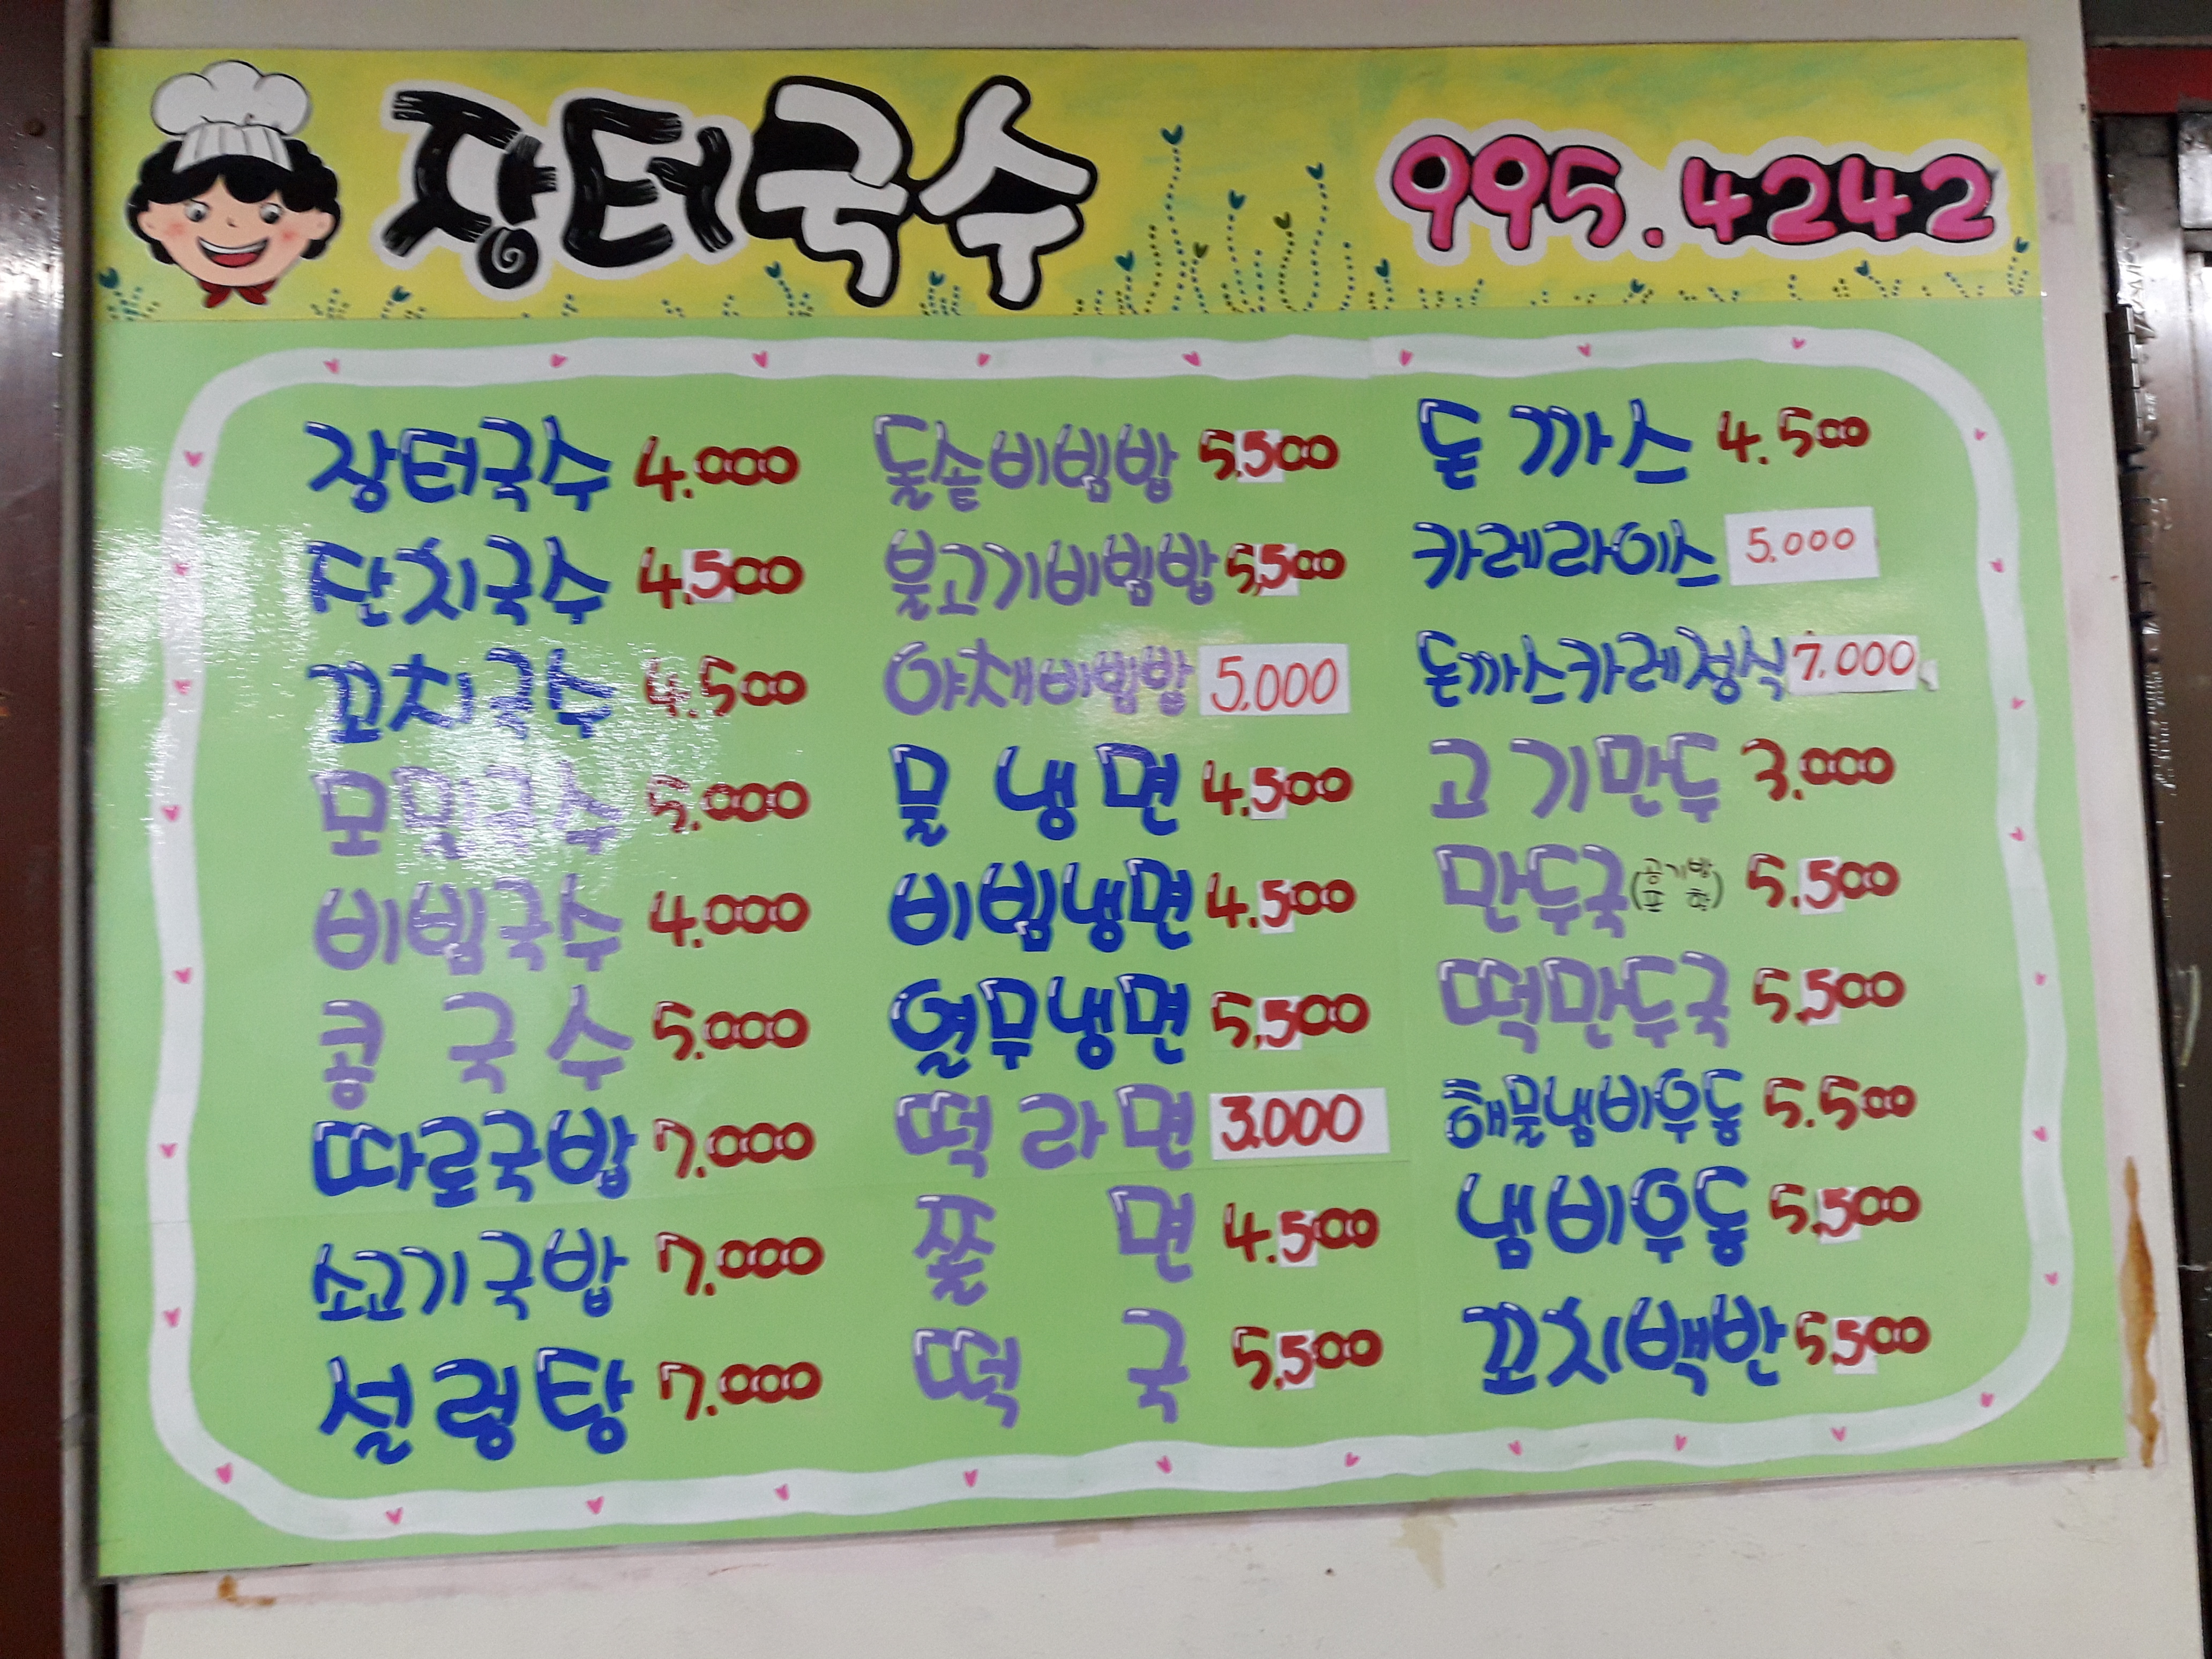 장터국수 995.4242
장터국수 4.000
잔치국수 4.500
꼬치국수 4.500
모밀국수 5.000
비빔국수 4.000
콩국수 5.000
따로국밥 7.000
소고기국밥 7.000
설렁탕 7.000
돌솥비빔밥 5.500
불고기비빔밥 5,500
야채비빔밥 5,000
물냉면 4.500
비빔냉면 4.500
열무냉면 5,500
떡라면 3.000
쫄면 4.500
떡국 5,500
돈까스 4.500
카레라이스 5,000
돈까스카레정식 7,000
고기만두 3.000
만두국(공기밥포함) 5.500
떡만두국 5.500
해물냄비우동 5.500
냄비우동 5.500
꼬치백반 5.500